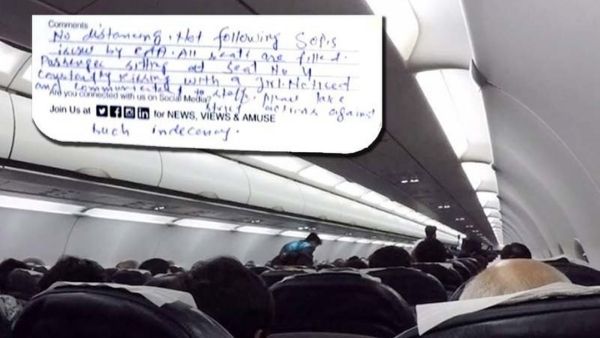 Comments
No distancing. Not following SOPs
issued by CAA. All seats are filled.
Passenger sitting at seat No 4
Constantly kissing with a girl. Noticed
and communicated to staff. Must take
Are you connected with us on Social Media?
strict actions against
Join Us at for NEWS, VIEWS & AMUSE
such indecency.